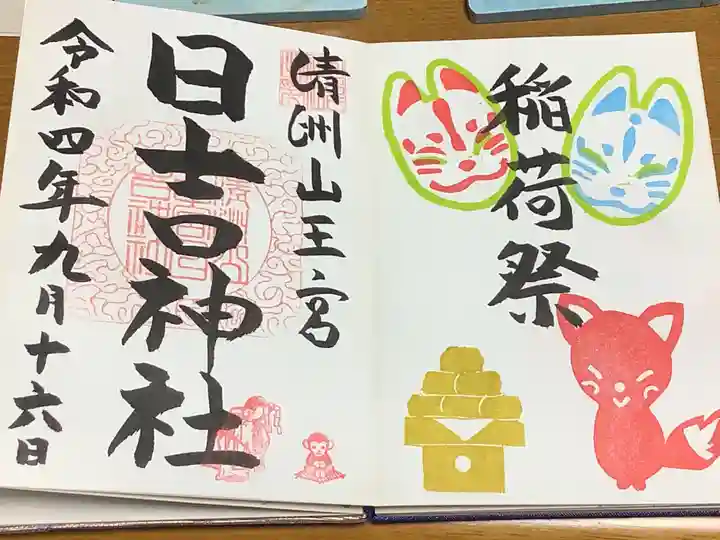 稲荷祭
清洲山王宮
日吉神社
令和四年九月十六日